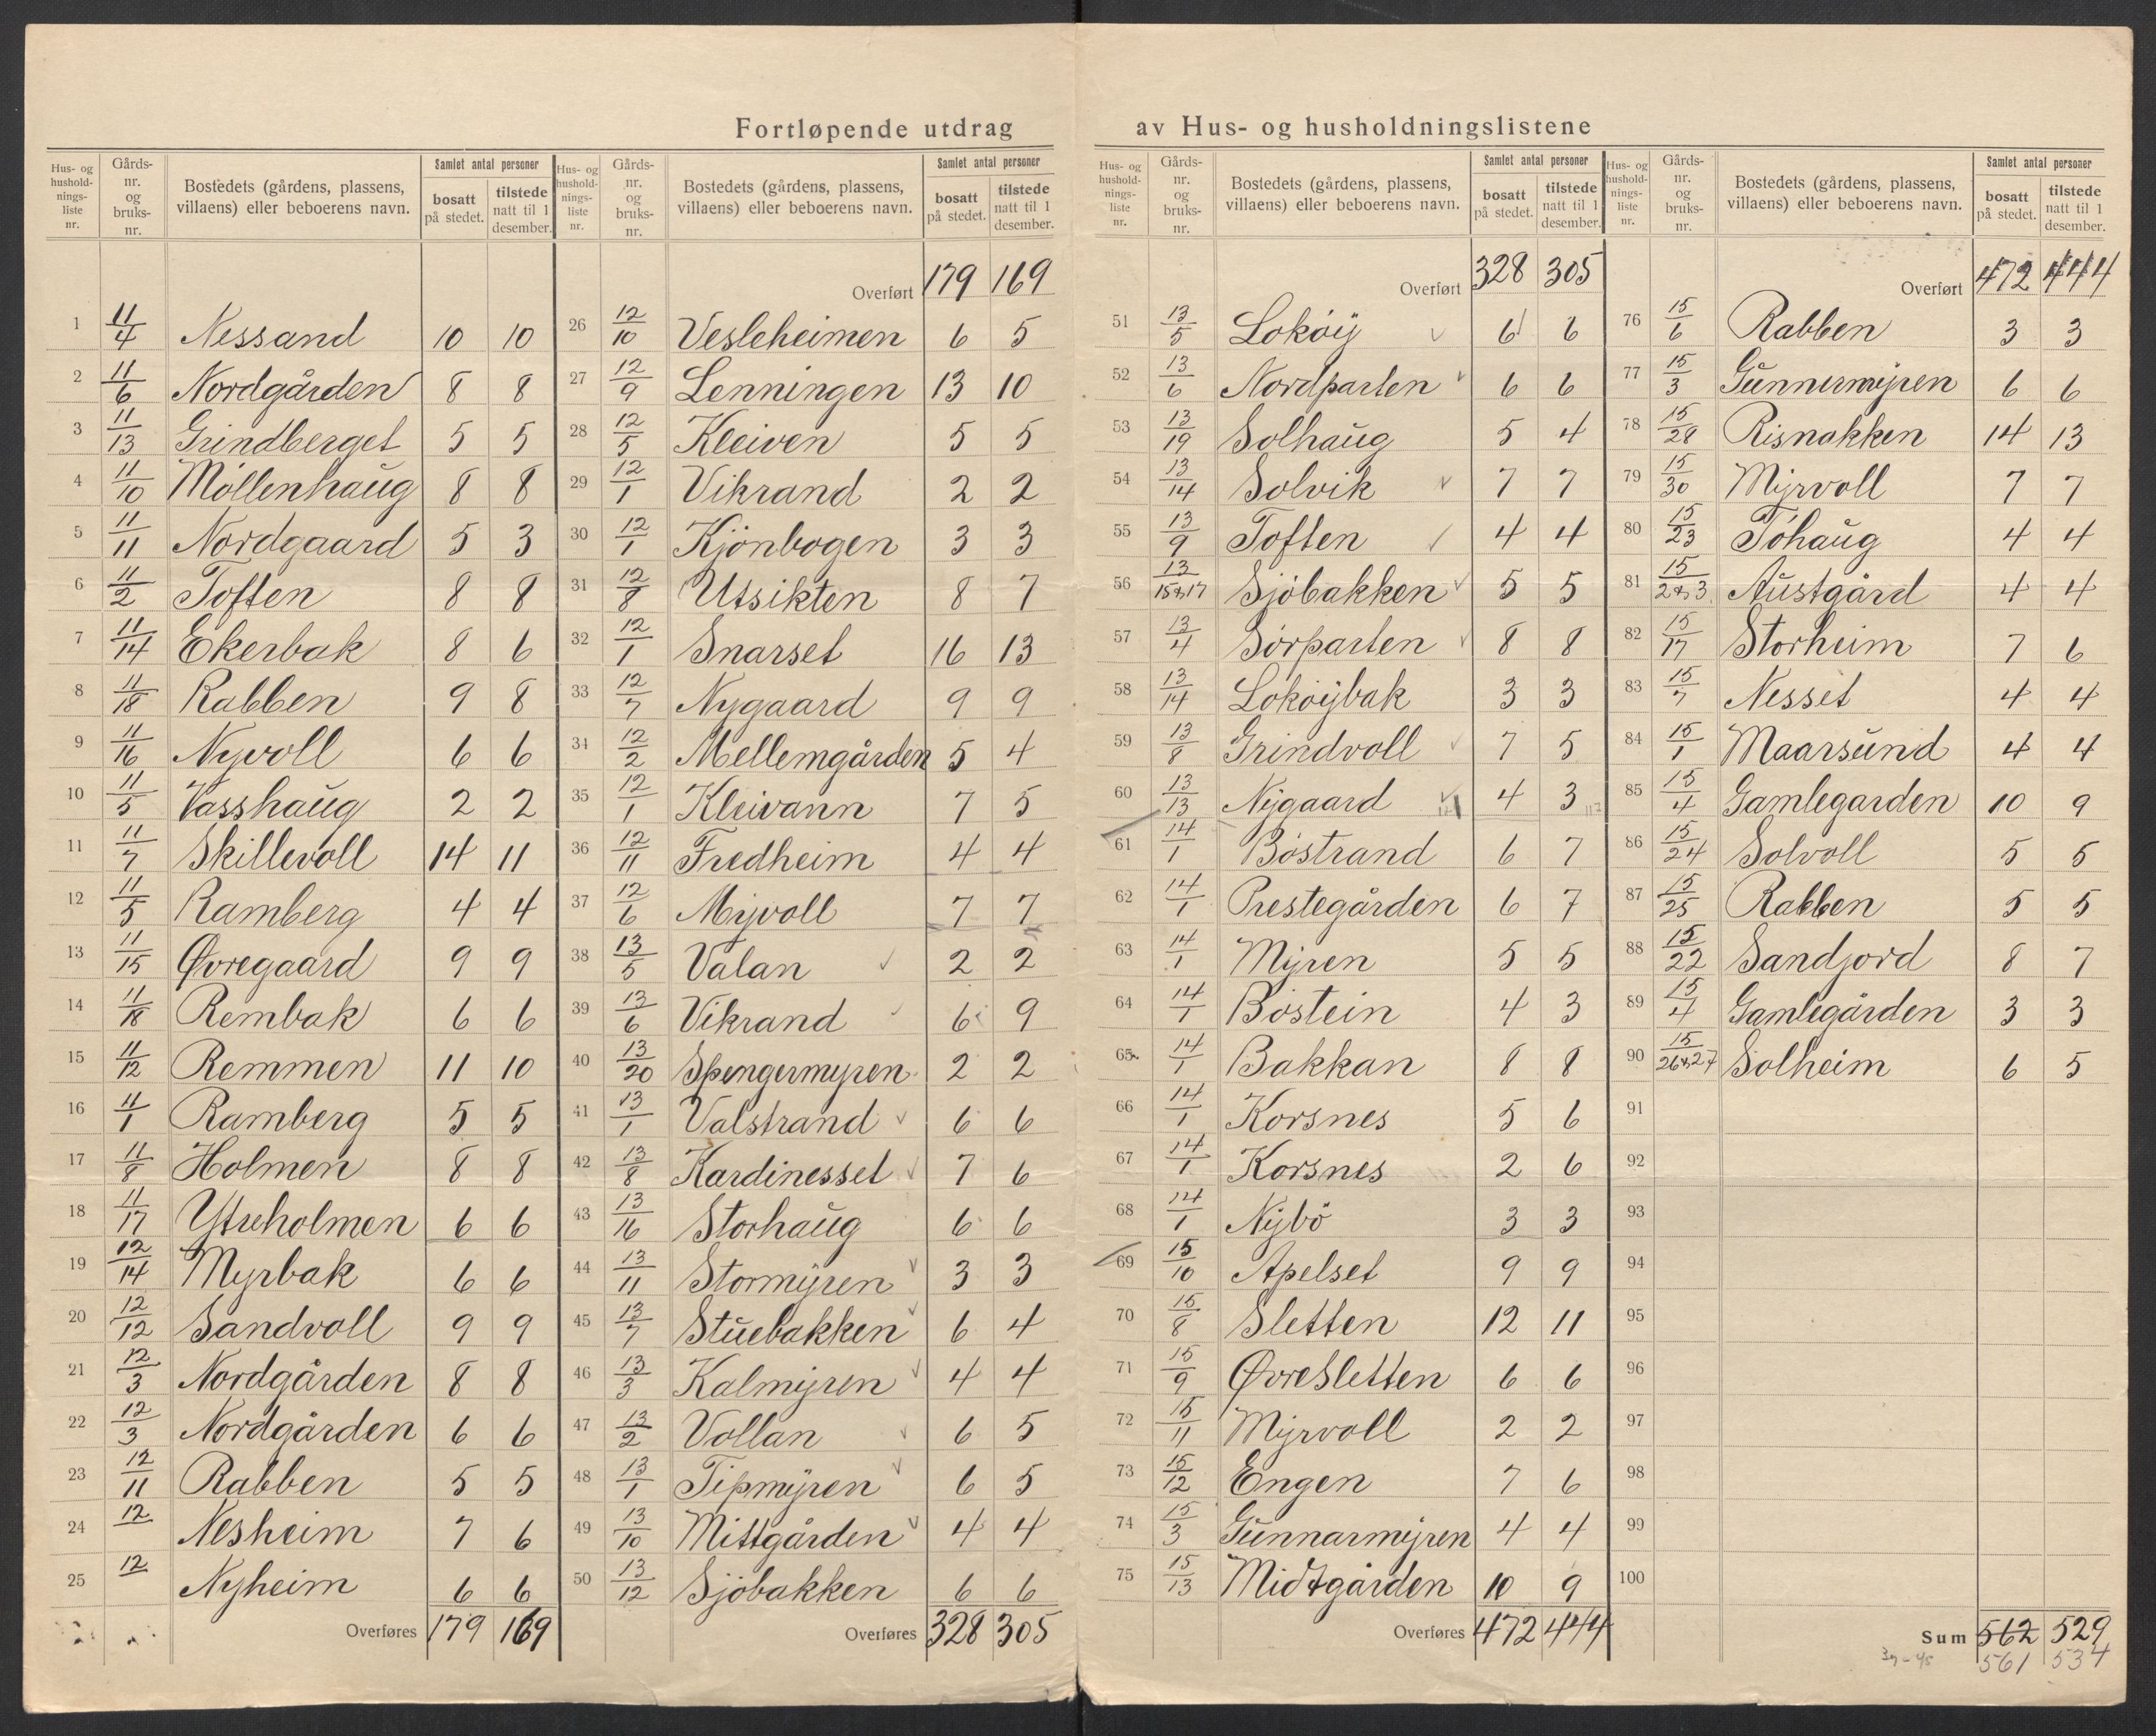 Fortløpende utdrag av Hus- og husholdningslistene
Hus- og hushold- nings- liste nr. | Gårds- nr. og bruks- nr. | Bostedets (gårdens, plassens, villaens) eller beboerens navn. | Samlet antal personer | bosatt på stedet. | tilstede natt til 1 desember.
1 11/4 Nessand 10 10
2 11/6 Nordgården 8 8
3 11/13 Grindberget 5 5
4 11/10 Möllenhaug 8 8
5 11/11 Nordgaard 5 3
6 11/2 Toften 8 8
7 11/14 Ekerbak 8 6
8 11/18 Rabben 9 8
9 11/16 Nyvoll 6 6
10 11/5 Vasshaug 2 2
11 11/7 Skillevoll 14 11
12 11/5 Ramberg 4 4
13 11/15 Øvregaard 9 9
14 11/18 Rembak 6 6
15 11/12 Remmen 11 10
16 11/1 Ramberg 5 5
17 11/8 Holmen 8 8
18 11/17 Ytreholmen 6 6
19 12/14 Myrbak 6 6
20 12/12 Sandvoll 9 9
21 12/3 Nordgården 8 8
22 12/3 Nordgården 6 6
23 12/11 Rabben 5 5
24 12 Nesheim 7 6
25 12 Nyheim 6 6
Overføres 179 169
Hus- og hushold- nings- liste nr. | Gårds- nr. og bruks- nr. | Bostedets (gårdens, plassens, villaens) eller beboerens navn. | Samlet antal personer | bosatt på stedet. | tilstede natt til 1 desember.
Overført 179 169
26 12/10 Vesleheimen 6 5
27 12/9 Lenningen 13 10
28 12/5 Kleiven 5 5
29 12/1 Vikrand 2 2
30 12/1 Kjönbogen 3 3
31 12/8 Utsikten 8 7
32 12/1 Snarset 16 13
33 12/7 Nygaard 9 9
34 12/2 Mellemgården 5 4
35 12/1 Kleivann 7 5
36 12/11 Fredheim 4 4
37 12/6 Myvoll 7 7
38 13/5 Valan 2 2
39 13/6 Vikrand 6 9
40 13/20 Spengermyren 2 2
41 13/1 Valstrand 6 6
42 13/8 Kardinesset 7 6
43 13/16 Storhaug 6 6
44 13/11 Stormyren 3 3
45 13/7 Stuebakken 6 4
46 13/3 Kalmyren 4 4
47 13/2 Vollan 6 5
48 13/1 Tipmyren 6 5
49 13/10 Mittgården 4 4
50 13/12 Sjöbakken 6 6
Overføres 328 305
Hus- og hushold- nings- liste nr. | Gårds- nr. og bruks- nr. | Bostedets (gårdens, plassens, villaens) eller beboerens navn. | Samlet antal personer | bosatt på stedet. | tilstede natt til 1 desember.
Overført 328 305
51 13/5 Loköy 6 6
52 13/6 Nordparten 6 6
53 13/19 Solhaug 5 4
54 13/14 Solvik 7 7
55 13/9 Toften 4 4
56 13/15+17 Sjöbakken 5 5
57 13/4 Sörparten 8 8
58 13/14 Loköybak 3 3
59 13/8 Grindvoll 7 5
60 13/13 Nygaard 4 3
61 14/1 Böstrand 6 7
62 14/1 Prestegården 6 7
63 14/1 Myren 5 5
64 14/1 Böstein 4 3
65 14/1 Bakkan 8 8
66 14/1 Korsnes 5 6
67 14/1 Korsnes 2 6
68 14/1 Nybö 3 3
69 15/10 Apelset 9 9
70 15/8 Sletten 12 11
71 15/9 Øvresletten 6 6
72 15/11 Myrvoll 2 2
73 15/12 Engen 7 6
74 15/3 Gunnarmyren 4 4
75 15/13 Midtgården 10 9
Overføres 472 444
Hus- og hushold- nings- liste nr. | Gårds- nr. og bruks- nr. | Bostedets (gårdens, plassens, villaens) eller beboerens navn. | Samlet antal personer | bosatt på stedet. | tilstede natt til 1 desember.
Overført 472 444
76 15/6 Rabben 3 3
77 15/3 Gunnermyren 6 6
78 15/28 Risnakken 14 13
79 15/30 Myrvoll 7 7
80 15/23 Töhaug 4 4
81 15/2+3 Austgård 4 4
82 15/17 Storheim 7 6
83 15/7 Nesset 4 4
84 15/1 Maarsund 4 4
85 15/4 Gamlegarden 10 9
86 15/24 Solvoll 5 5
87 15/25 Rabben 5 5
88 15/22 Sandjord 8 7
89 15/4 Gamlegården 3 3
90 15/26+27 Solheim 6 5
91
92
93
94
95
96
97
98
99
100
Sum 562 529
39-45 561 534